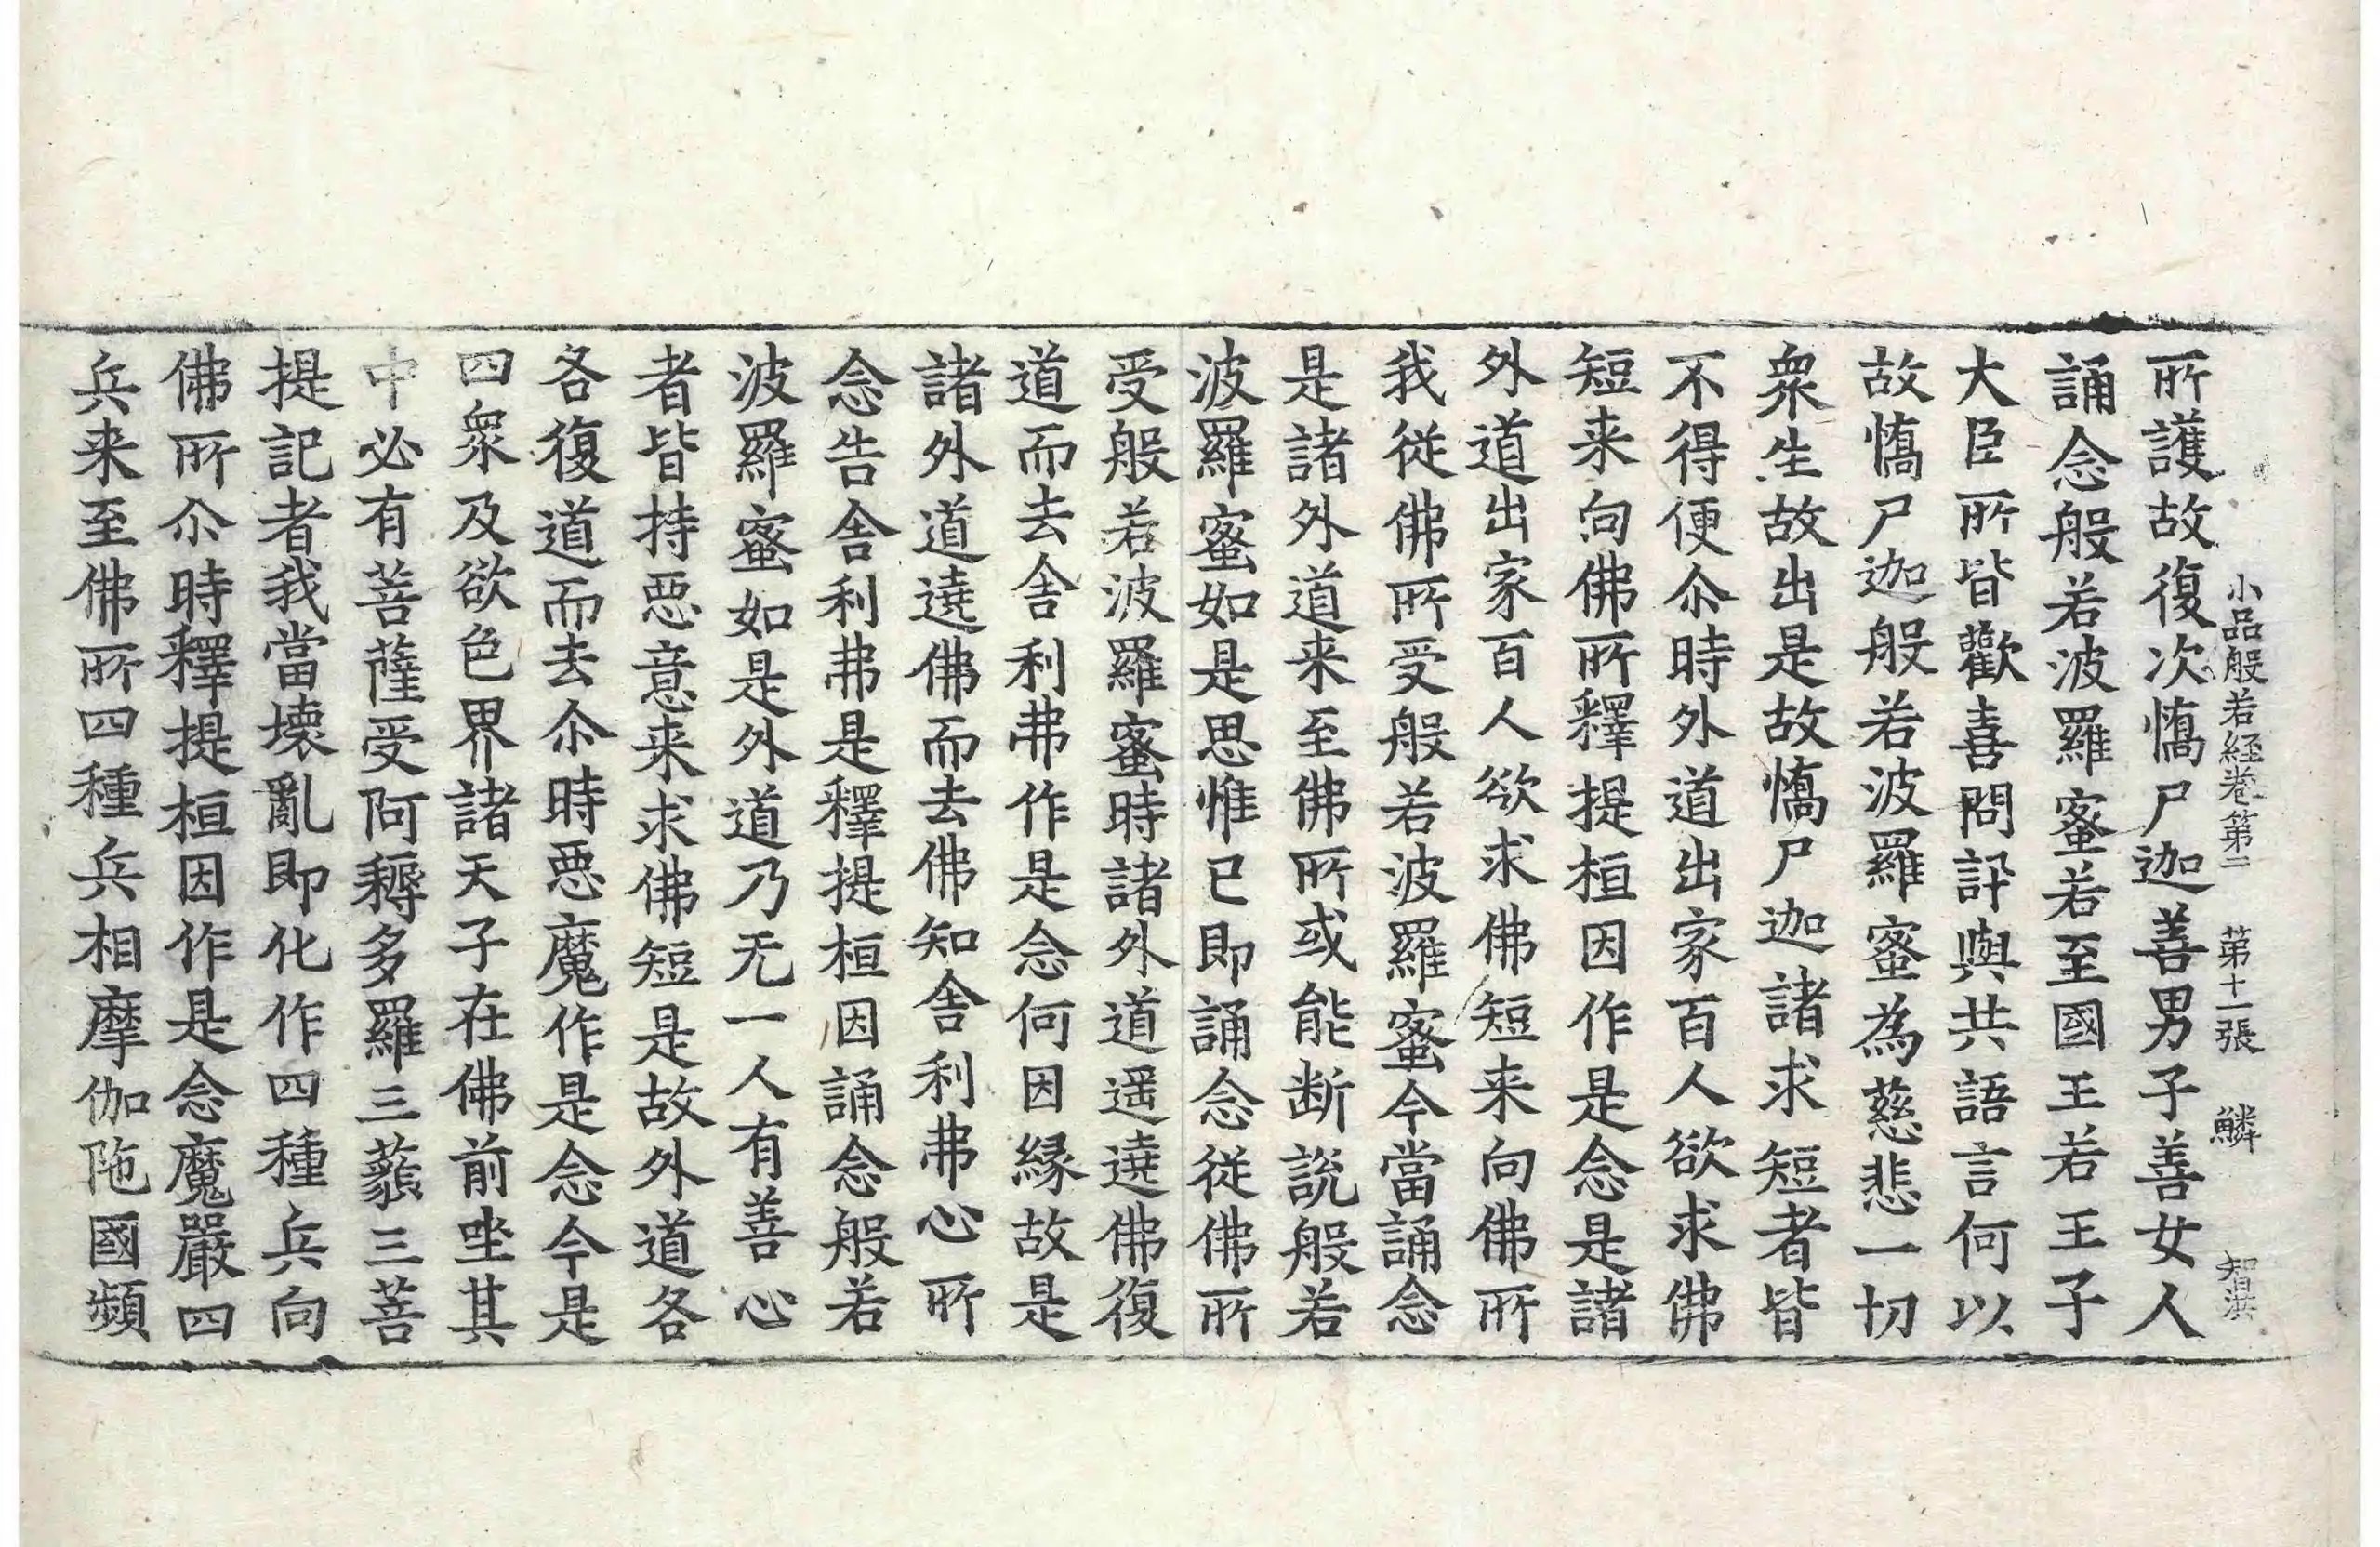 小品般若経卷第二 第十一張 鱗 智淇
所護故復次憍尸迦善男子善女人
誦念般若波羅蜜若至國王若王子
大臣所皆歡喜問訊與共語言何以
故憍尸迦般若波羅蜜為慈悲一切
衆生故出是故憍尸迦諸求短者皆
不得便尒時外道出家百人欲求佛
短来向佛所釋提桓因作是念是諸
外道出家百人欲求佛短来向佛所
我従佛所受般若波羅蜜今當誦念
是諸外道来至佛所或能断說般若
波羅蜜如是思惟已即誦念従佛所
受般若波羅蜜時諸外道遥遶佛復
道而去舍利弗作是念何因縁故是
諸外道遶佛而去佛知舍利弗心所
念告舍利弗是釋提桓因誦念般若
波羅蜜如是外道乃无一人有善心
者皆持惡意来求佛短是故外道各
各復道而去尒時惡魔作是念今是
四衆及欲色界諸天子在佛前坐其
中必有菩薩受阿耨多羅三藐三菩
提記者我當壊亂即化作四種兵向
佛所尒時釋提桓因作是念魔嚴四
兵来至佛所四種兵相摩伽陁國頻